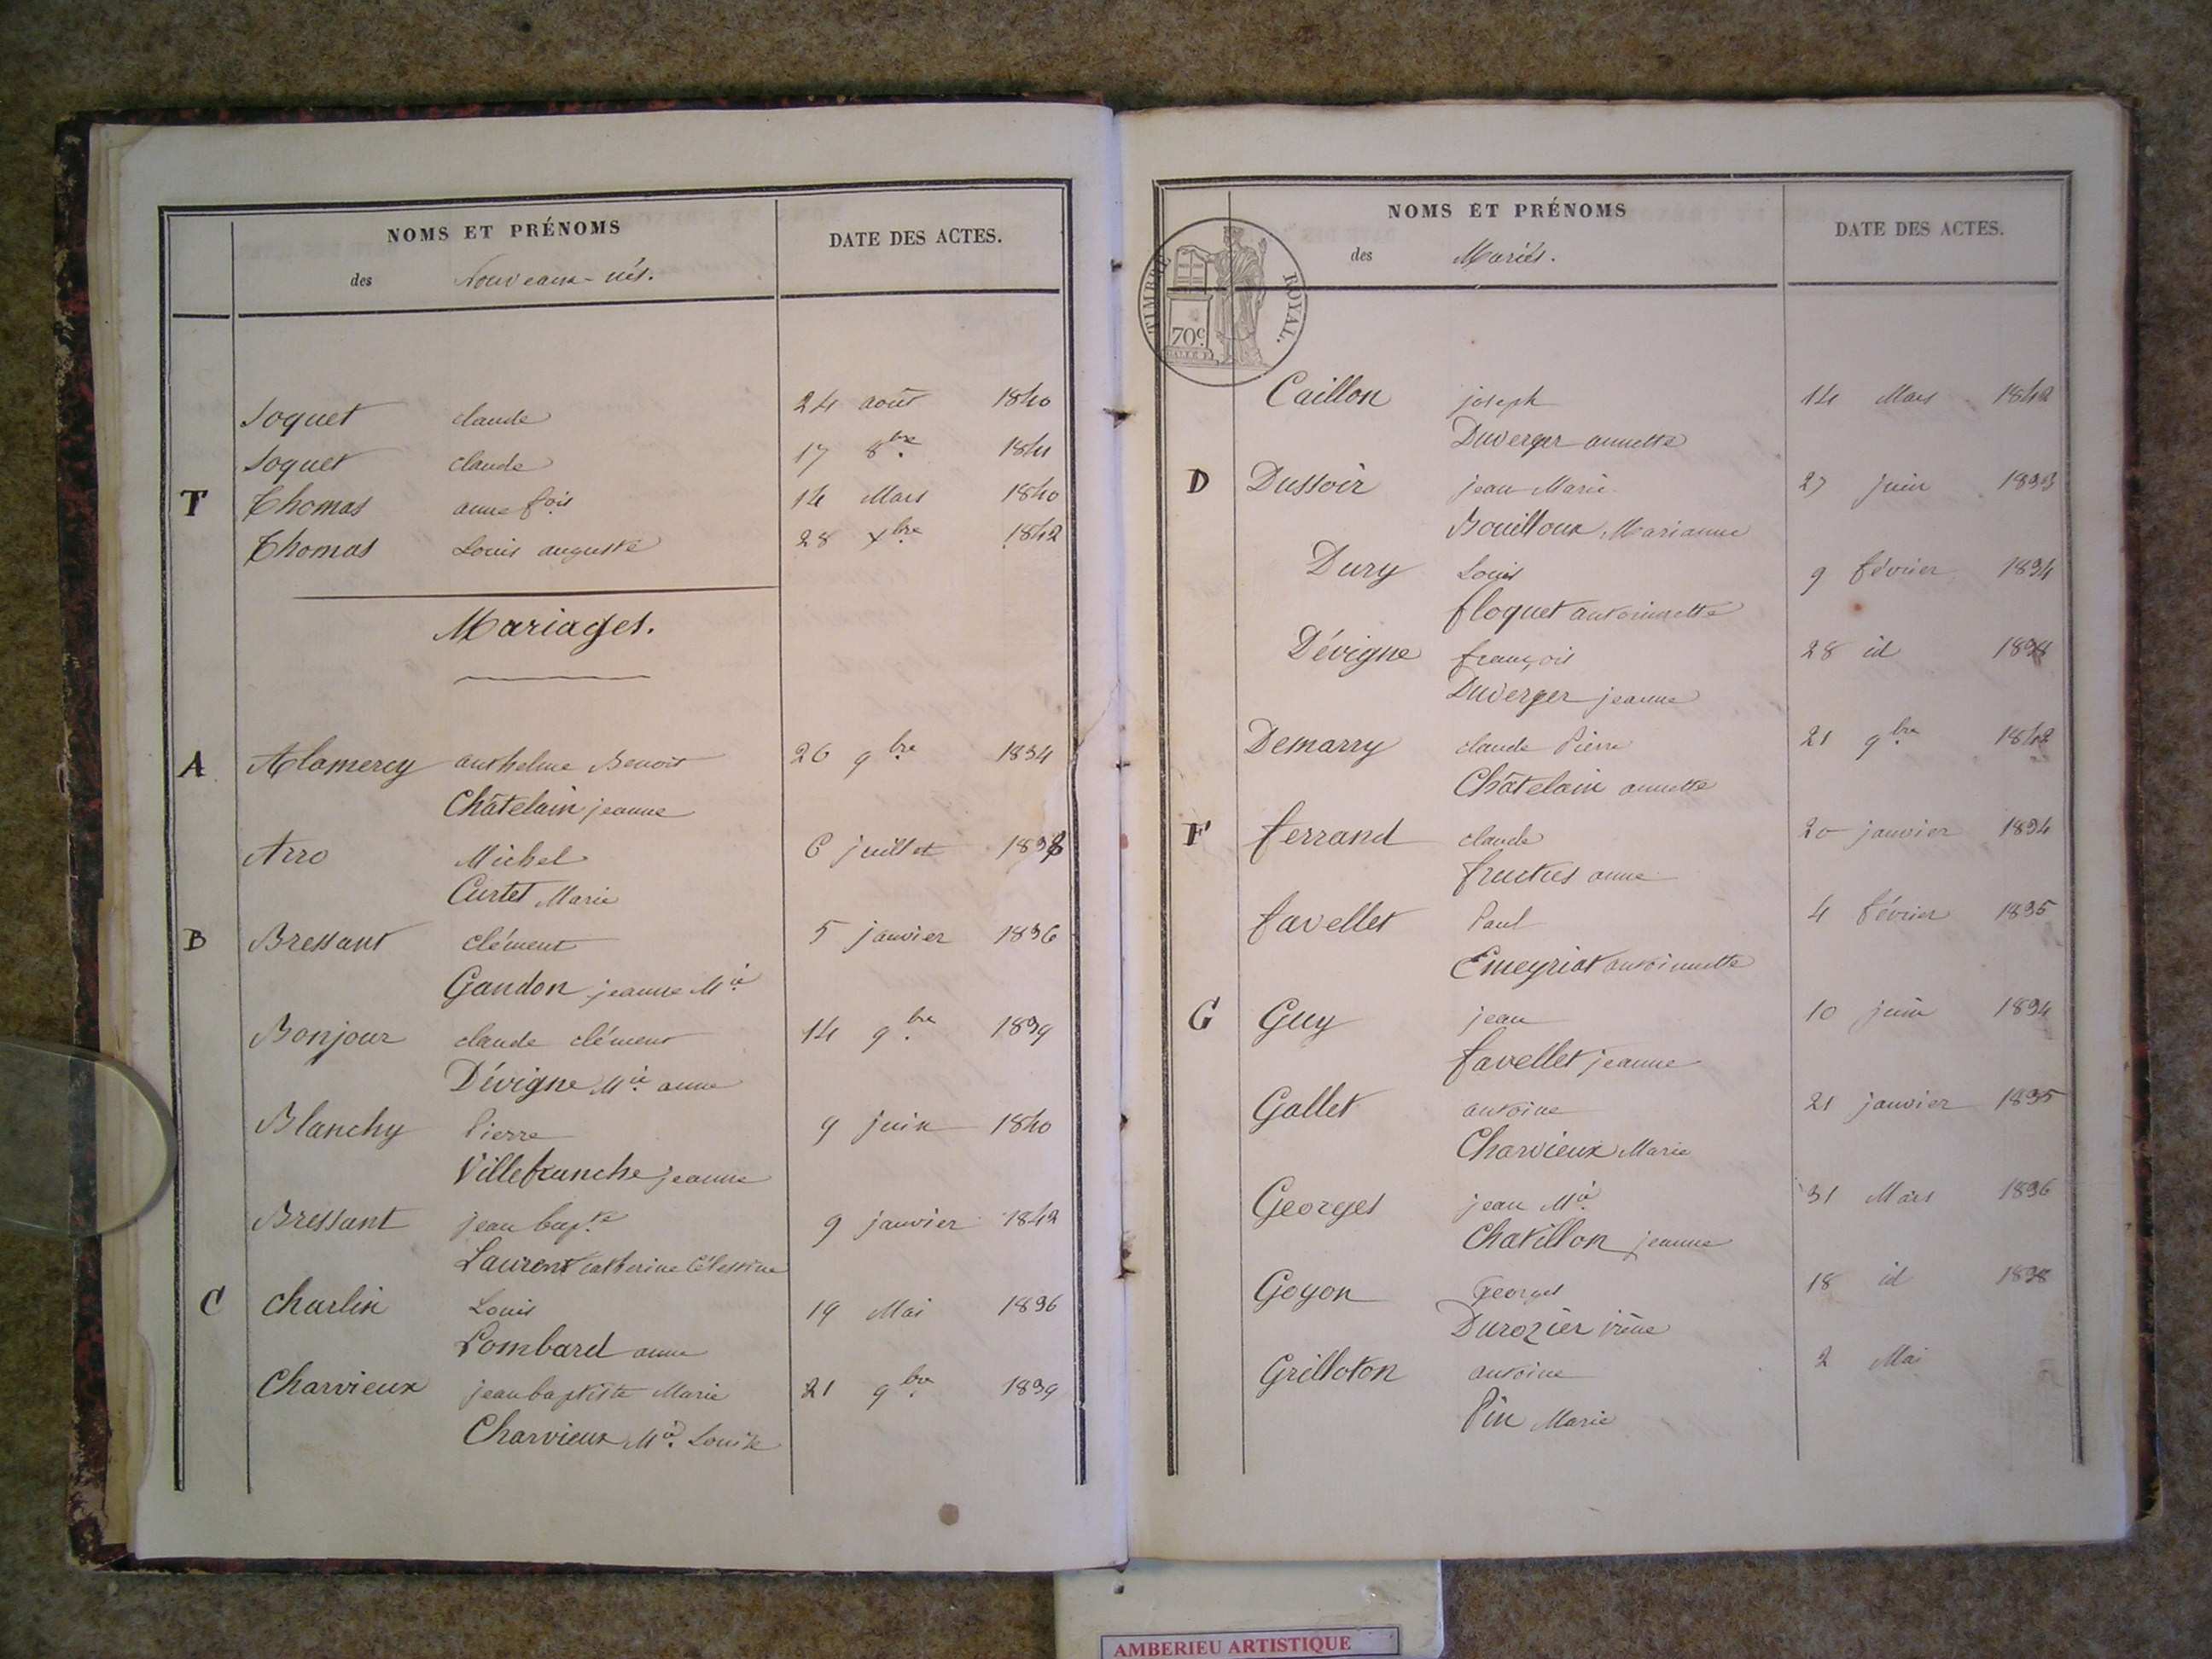 NOMS ET PRÉNOMS
des Nouveaux-nés.
DATE DES ACTES.
Soquet claude 24 août 1840
Soquet claude 17 8bre 1841
T Thomas anne fois 14 Mars 1840
Thomas Louis auguste 28 Xbre 1842
Mariages.
A Alamercy anthelme Benoit 26 9bre 1834
Châtelain jeanne
Arro Michel 6 juillet 1838
Curtet Marie
B Bressant clément 5 janvier 1836
Gandon jeanne Mie
Bonjour claude clément 14 9bre 1839
Dévigne Mie anne
Blanchy Pierre 9 juin 1840
Villefranche jeanne
Bressant jean bapte 9 janvier 1842
Laurent catherine Célestine
C Charlin Louis 19 Mai 1836
Lombard anne
Charvieux jean baptiste Marie 21 9bre 1839
Charvieux Mie Louise
NOMS ET PRÉNOMS
des Mariés.
DATE DES ACTES.
TIMBRE ROYAL.
70c
Caillon joseph 14 Mars 1842
Duverger annette
D Dussoir jean Marie 27 juin 1833
Bouilloux Marianne
Dury Louis 9 février 1834
floquet antoinette
Dévigne françois 28 id 1838
Duverger jeanne
Demarry claude Pierre 21 9bre 1842
Châtelain annette
F ferrand claude 20 janvier 1834
anne
favellet Paul 4 février 1835
Emeyriat antoinette
G Guy jean 10 juin 1834
favellet jeanne
Gallet antoine 21 janvier 1835
Charvieux Marie
Georges jean Mie 31 Mars 1836
Chatillon jeanne
Goyon Georges 18 id 1838
Durozier irène
Grilloton antoine 2 Mai
Pin Marie
AMBERIEU ARTISTIQUE